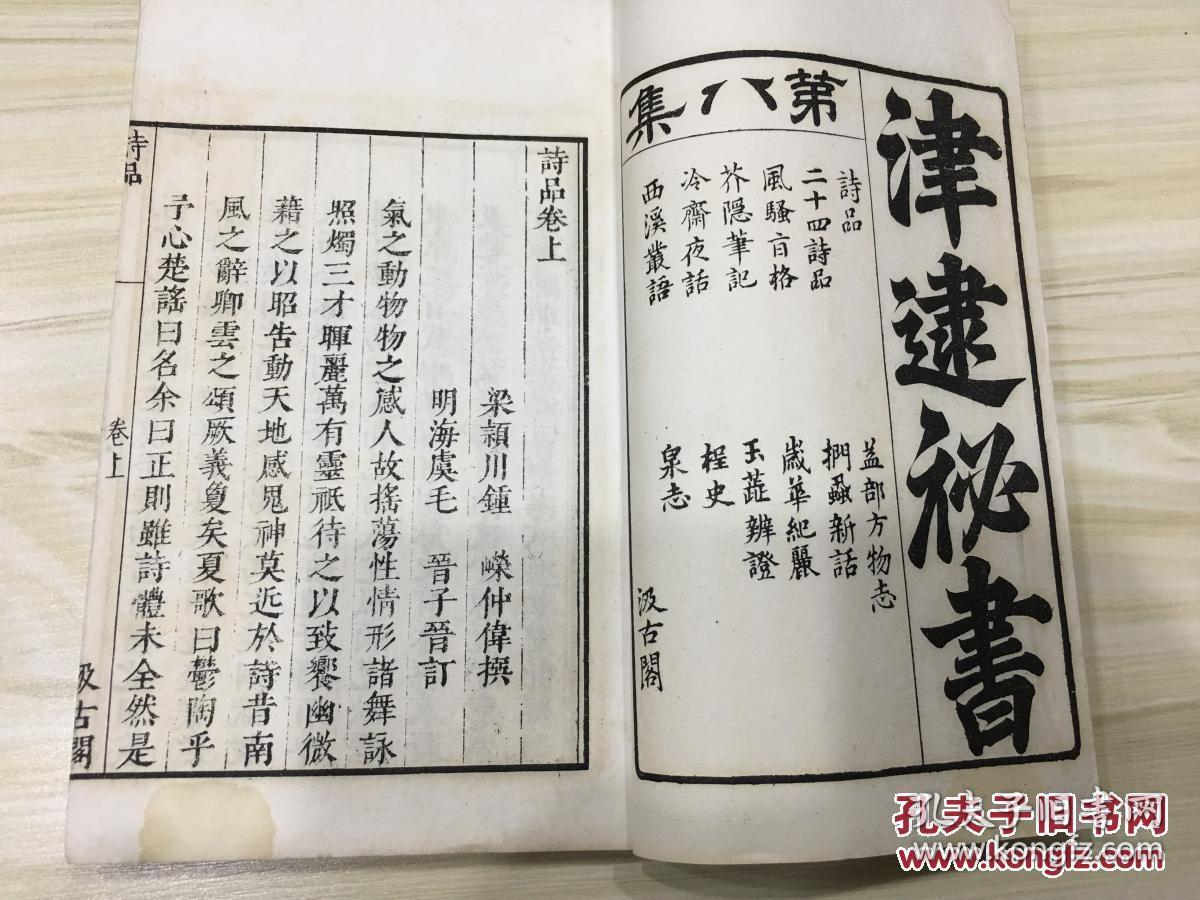 津逮秘書
第八集
詩品
二十四詩品
風騷旨格
芥隱筆記
冷齋夜話
西溪叢語
益部方物志
捫蝨新話
歲華紀麗
玉蘂辨證
桯史
泉志
汲古閣
詩品卷上
梁潁川鍾 嶸仲偉撰
明海虞毛 晉子晉訂
氣之動物物之感人故搖蕩性情形諸舞詠
照燭三才暉麗萬有靈祇待之以致饗幽微
藉之以昭告動天地感鬼神莫近於詩昔南
風之辭卿雲之頌厥義夐矣夏歌曰鬱陶乎
予心楚謠曰名余曰正則雖詩體未全然是
詩品
卷上
汲古閣
孔夫子旧书网
www.kongfz.com
孔夫子旧书网
www.kongfz.com